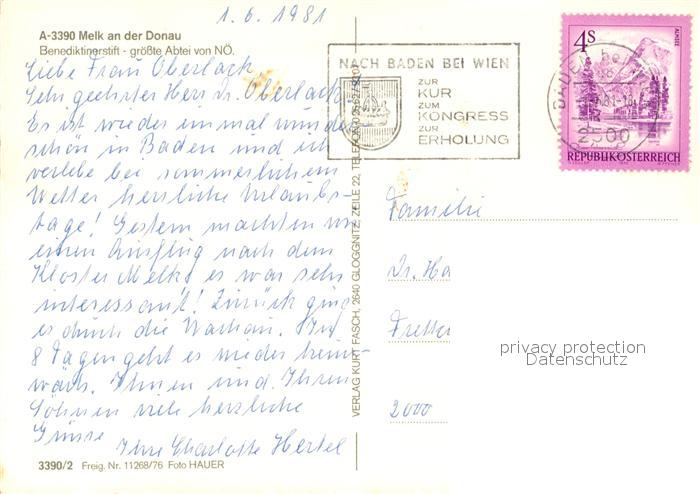 1.6.1981
A-3390 Melk an der Donau
Benediktinerstift - größte Abtei von NÖ.
Liebe Frau Oberlack
Sehr geehrter Herr Dr. Oberlack
Es ist wieder einmal wunder
schön in Baden und ich
verlebe bei sommerlichem
Wetter herrliche Urlaubs-
tage! Gestern machten wir
einen Ausflug nach dem
Kloster Melk, es war sehr
interessant! Zurück ging
es durch die Wachau. In
8 Tagen geht es wieder heim-
wärts. Ihnen und Ihren
Söhnen viele herzliche
Grüsse Ihre Charlotte Hertel
3390/2 Freig. Nr. 11268/76 Foto HAUER
VERLAG KURT FASCH, 2640 GLOGGNITZ, ZEILE 22, TELEFON
NACH BADEN BEI WIEN
ZUR
KUR
ZUM
KONGRESS
ZUR
ERHOLUNG
4S
ALMSEE
BADEN bei
2500
REPUBLIK ÖSTERREICH
Familie
Dr. Ha
2000
privacy protection
Datenschutz